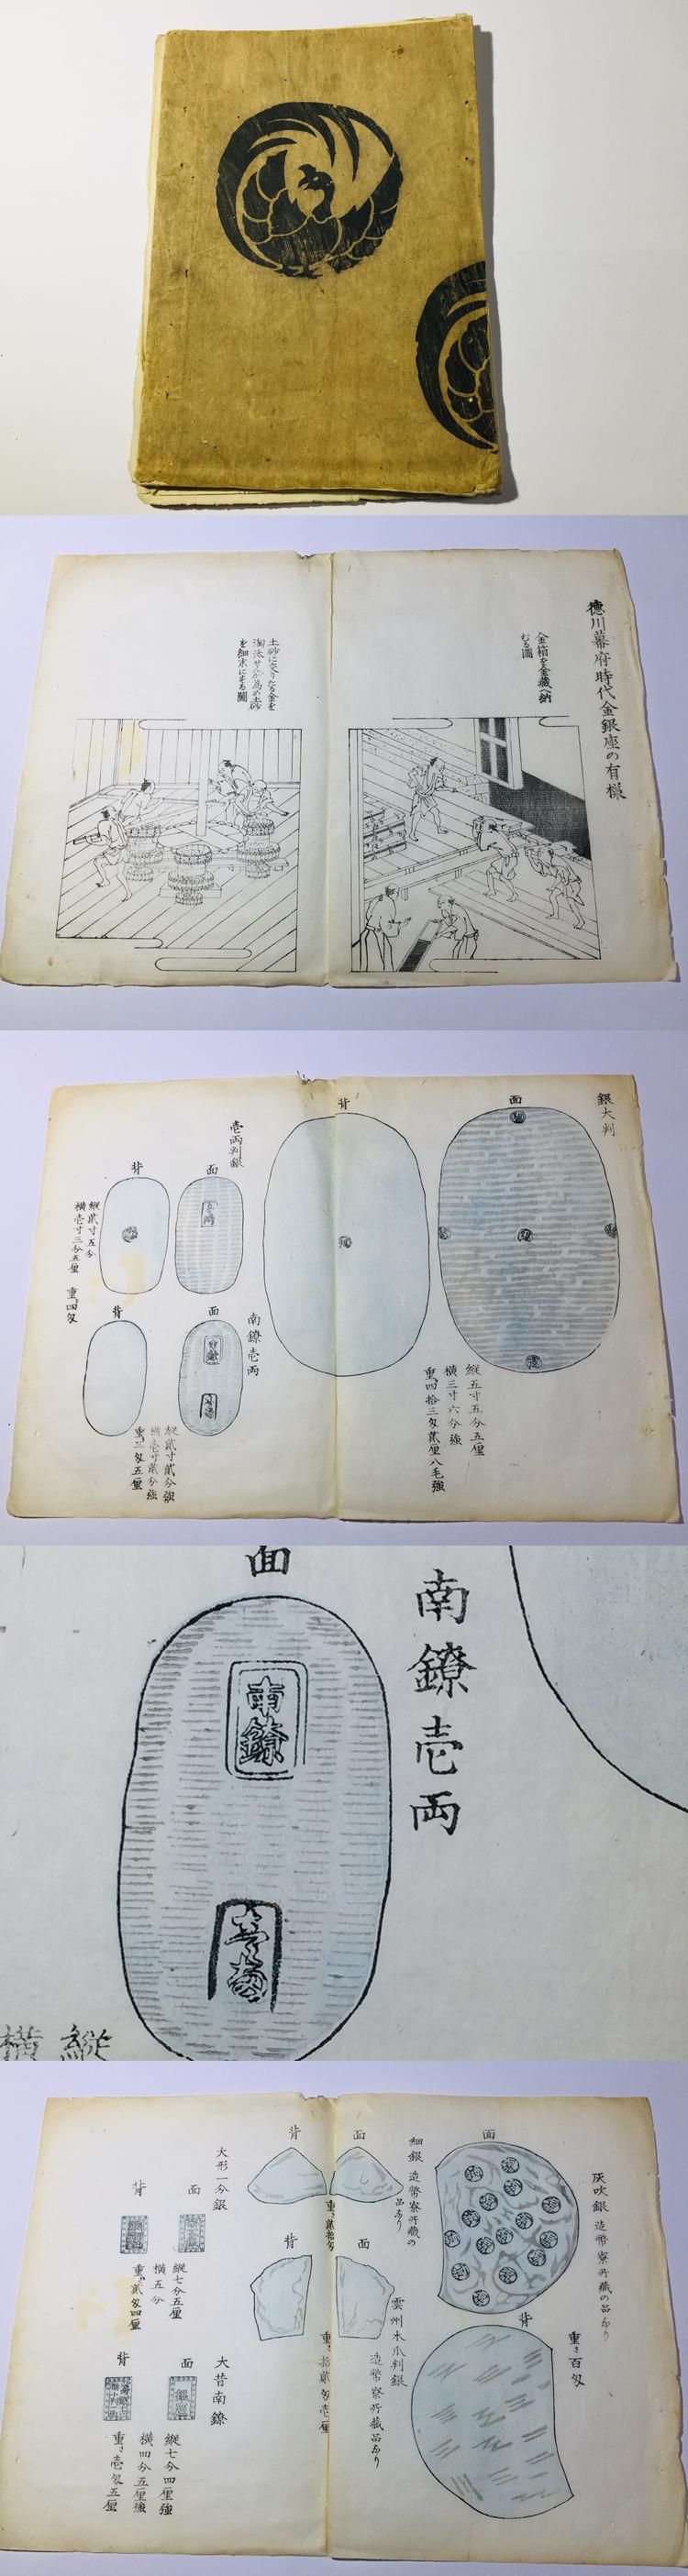 徳川幕府時代金銀座の有様
金箱を金蔵へ納
むる圖
土砂に交りたる金を
淘汰せんが為め土砂
を細末にする圖
銀大判
面
背
縦五寸五分五厘
横三寸六分強
重四拾三匁貳厘八毛強
壱両判銀
面
背
縦貳寸五分
横壱寸三分五厘
重四匁
南鐐壱両
面
背
縦貳寸貳分強
横壱寸貳分強
重二匁五厘
面
南鐐壱両
南鐐
横
縦
灰吹銀 造幣寮所蔵の品なり
面
背
重さ百匁
細銀 造幣寮所蔵の
品なり
面
背
重さ貳拾匁
雲州木瓜判銀
造幣寮所蔵品なり
面
背
重さ拾貳匁壱厘
大形一分銀
面
背
縦七分五厘
横五分
重さ貳匁四厘
大昔南鐐
面
背
縦七分四厘強
横四分五厘強
重さ壱匁五厘